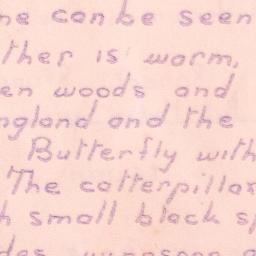 ne can be seen
ther is warm,
en woods and
ngland and the
Butterfly with
The catterpillar
h small black sp
des